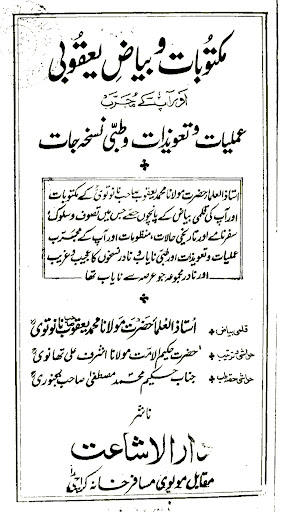 مکتوبات و بیاضِ یعقوبی
اور آپ کے مجرب
عملیات و تعویذات و طبّی نسخہ جات
استاذ العلماء حضرت مولانا محمد یعقوب صاحب نانوتوی کے مکتوبات
اور آپ کی قلمی بیاض کے پانچوں حصے جس میں تصوف و سلوک،
سفرنامے اور تاریخی حالات، منظومات اور آپ کے مجرب
عملیات و تعویذات اور طبی نایاب نادر نسخوں کا عجیب و غریب
اور نادر مجموعہ جو عرصہ سے نایاب تھا
قلمی بیاض • استاذ العلماء حضرت مولانا محمد یعقوب صاحب نانوتوی
حواشی ترتیب • حضرت حکیم الامت مولانا اشرف علی تھانوی
حواشی حصہ طب • جناب حکیم محمد مصطفیٰ صاحب بجنوری
ناشر
دار الاشاعت
مقابل مولوی مسافر خانہ کراچی